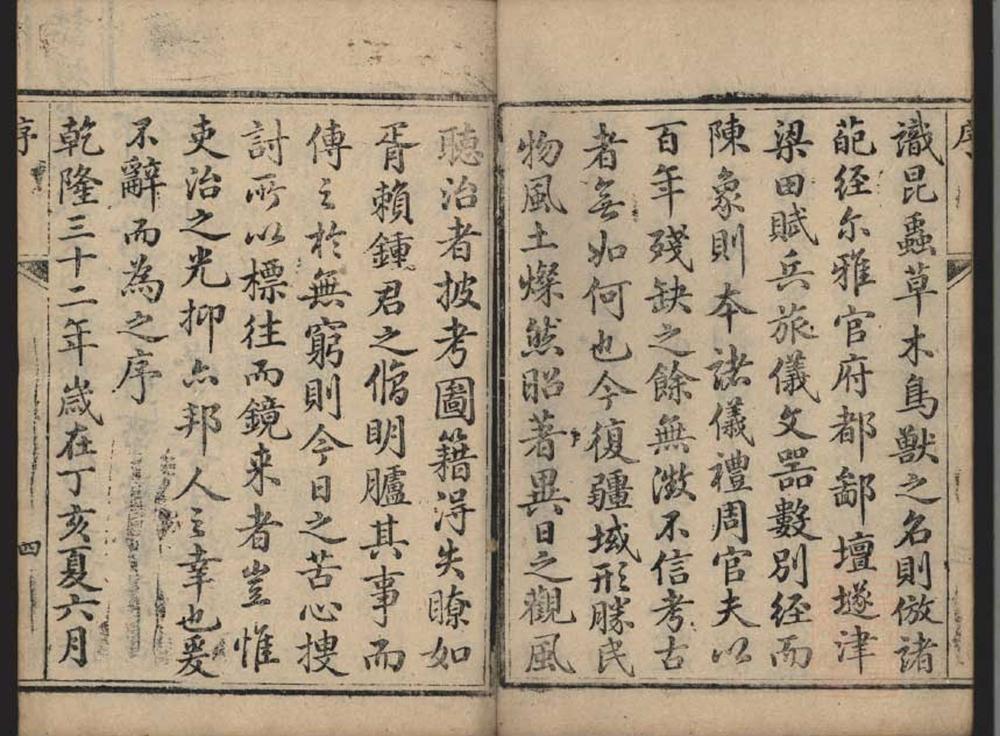 序
識昆蟲草木鳥獸之名則倣諸
葩經尔雅官府都鄙壇墜津
梁田賦兵旅儀文器數別經而
陳象則本諸儀禮周官夫以
百年殘缺之餘無徵不信考古
者無如何也今復疆域形勝民
物風土燦然昭著異日之觀風
聽治者披考圖籍得失瞭如
胥賴鍾君之脩明臚其事而
傳之於無窮則今日之苦心搜
討所以標往而鏡来者豈惟
吏治之光抑亦邦人之幸也爰
不辭而為之序
乾隆三十二年歲在丁亥夏六月
序
四